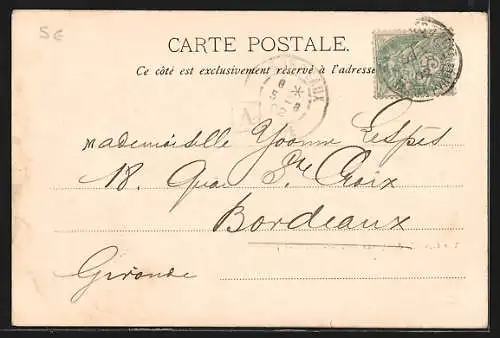 5€
CARTE POSTALE.
Ce côté est exclusivement réservé à l'adresse
Mademoiselle Yvonne Lespès
18. Quai Ste Croix
Bordeaux
Gironde